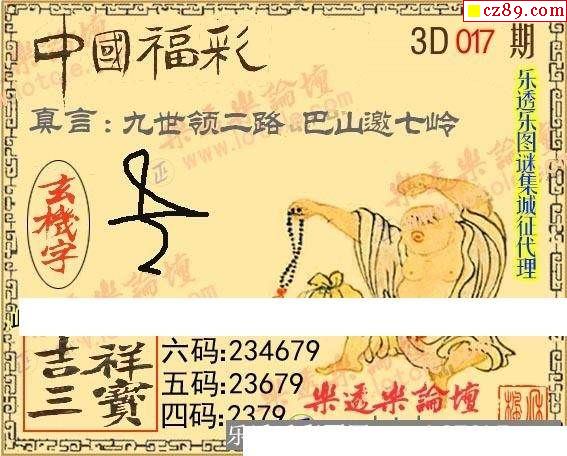 cz89.com
中國福彩
3D 017 期
真言：九世领二路 巴山邀七岭
玄機字
乐透乐图谜集城征代理
吉祥
三寶
六码:234679
五码:23679
四码:2379
樂透樂論壇